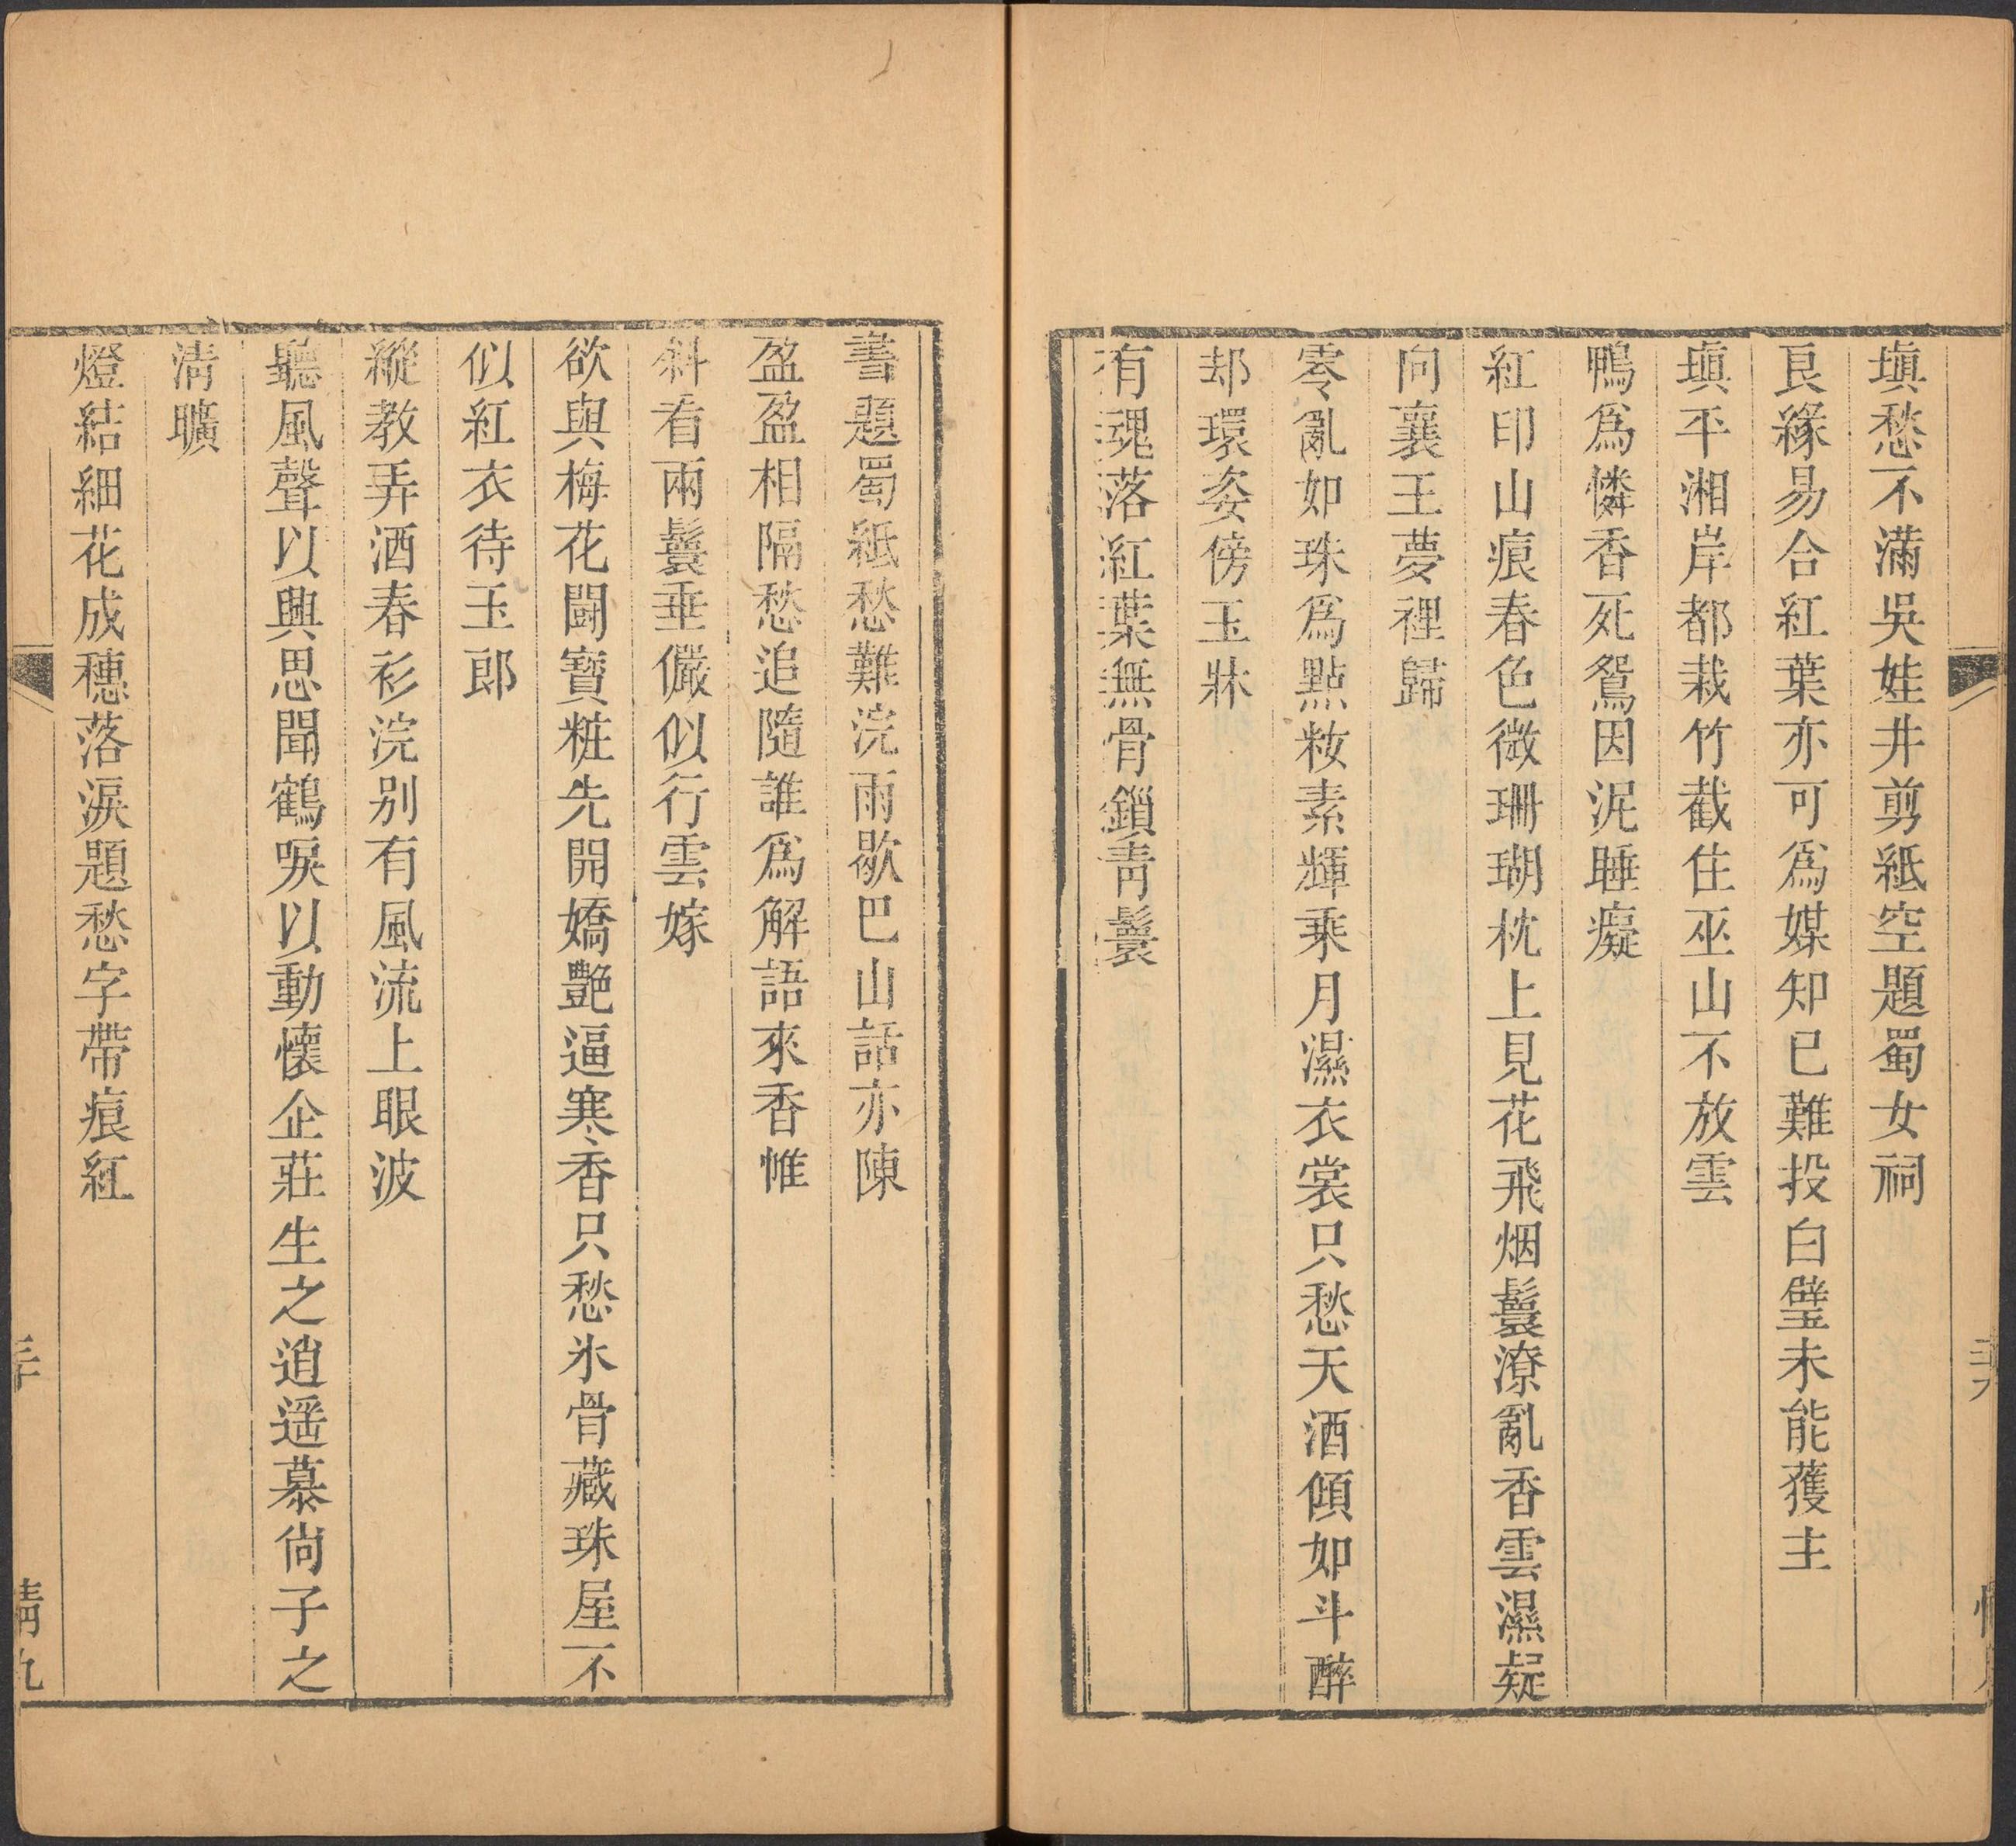 塡愁不滿吳娃井剪紙空題蜀女祠
良緣易合紅葉亦可爲媒知已難投白璧未能獲主
塡平湘岸都栽竹截住巫山不放雲
鴨爲憐香死鴛因泥睡癡
紅印山痕春色微珊瑚枕上見花飛烟鬟潦亂香雲濕疑
向襄王夢裡歸
零亂如珠爲點粧素輝乘月濕衣裳只愁天酒傾如斗醉
却環姿傍玉牀
有魂落紅葉無骨鎖靑鬟
書題蜀紙愁難浣雨歇巴山話亦陳
盈盈相隔愁追隨誰爲解語來香帷
斜看兩鬟垂儼似行雲嫁
欲與梅花鬪寶粧先開嬌艷逼寒香只愁氷骨藏珠屋不
似紅衣待玉郎
縱教弄酒春衫浣别有風流上眼波
聽風聲以興思聞鶴唳以動懷企莊生之逍遥慕尙子之
淸曠
燈結細花成穗落淚題愁字帶痕紅
三十
情九